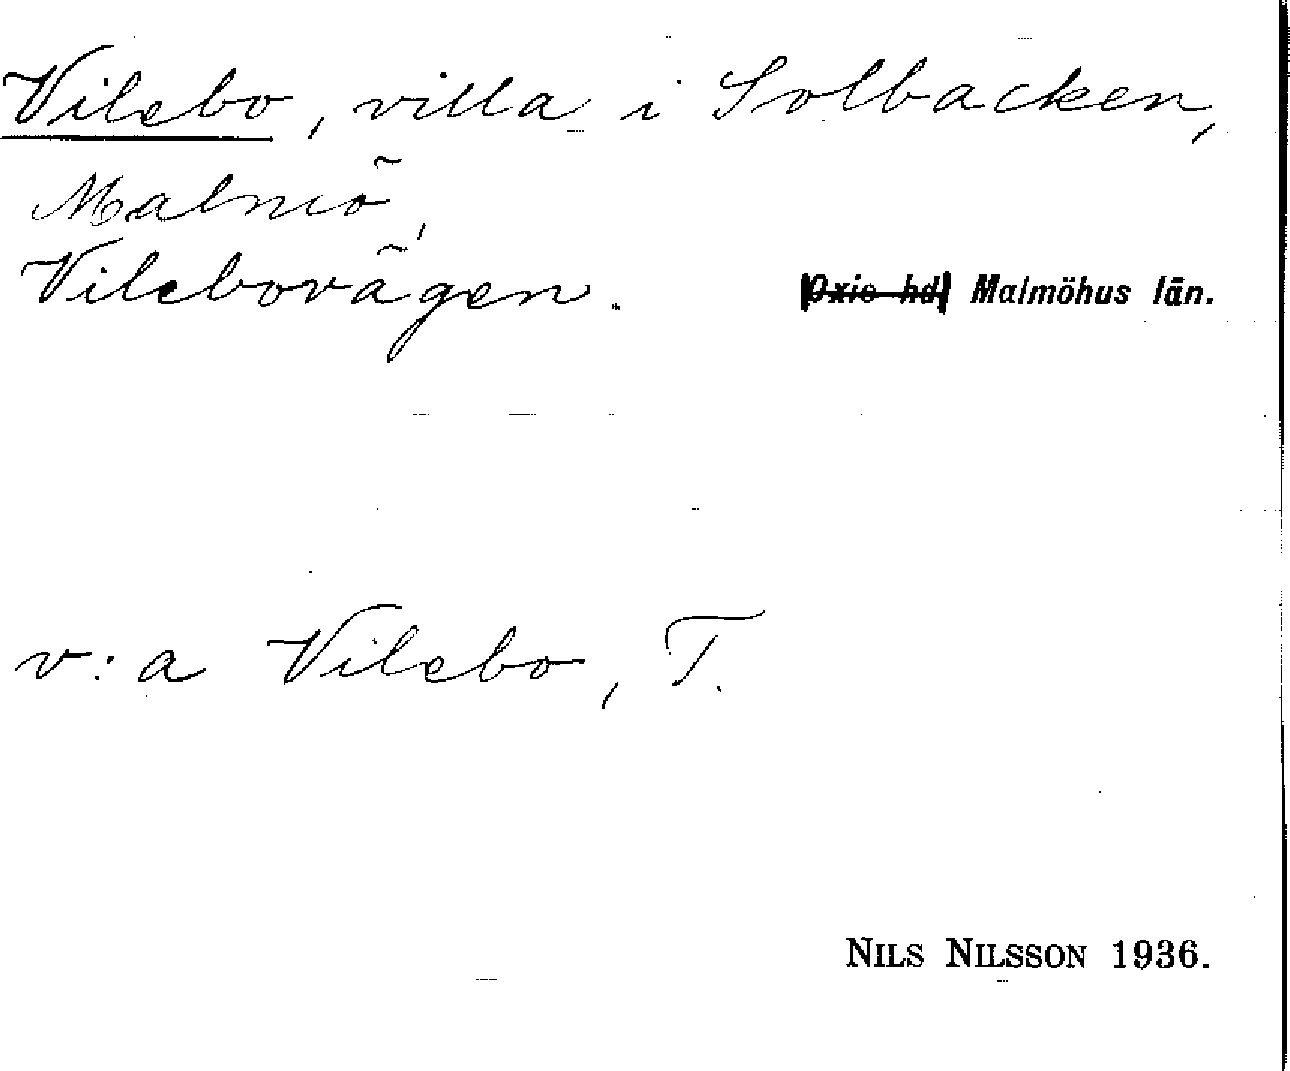 Vilebo, villa i Solbacken,
Malmö,
Vilebovägen. Oxie hd Malmöhus län.
v: a Vilebo, T.
NILS NILSSON 1936.